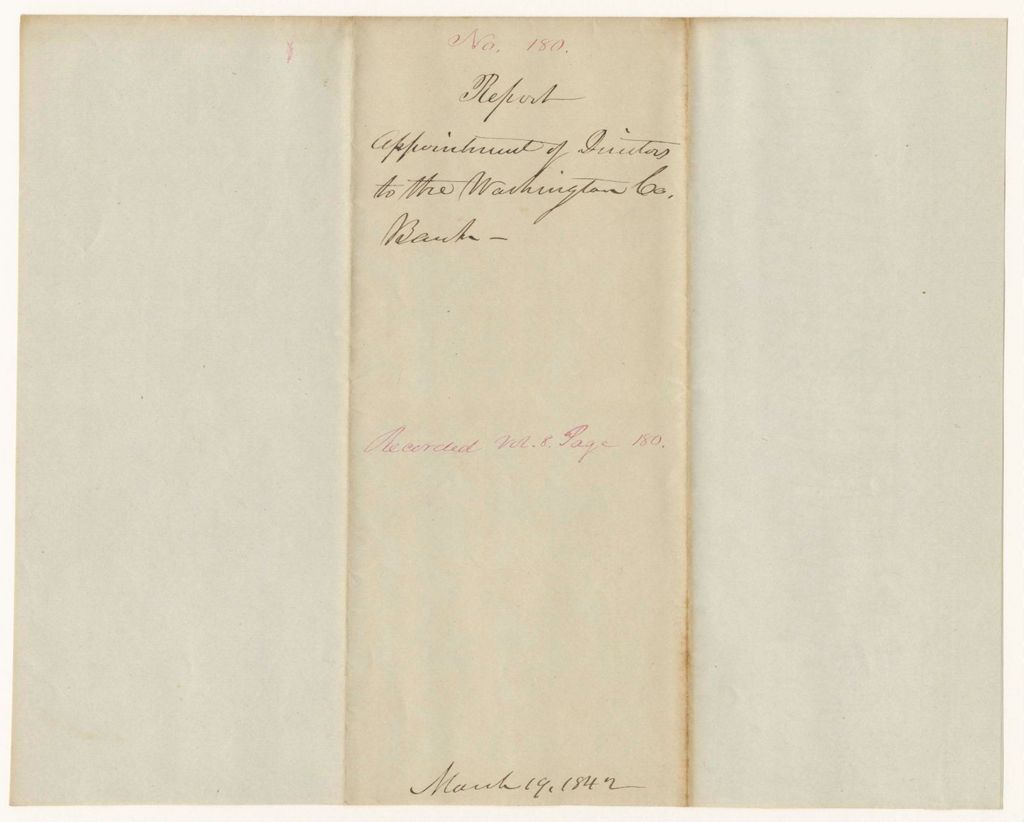 No. 180.
Report
Appointment of Directors
to the Washington Co.
Bank —
Recorded Vol. 8. Page 180.
March 19, 1842